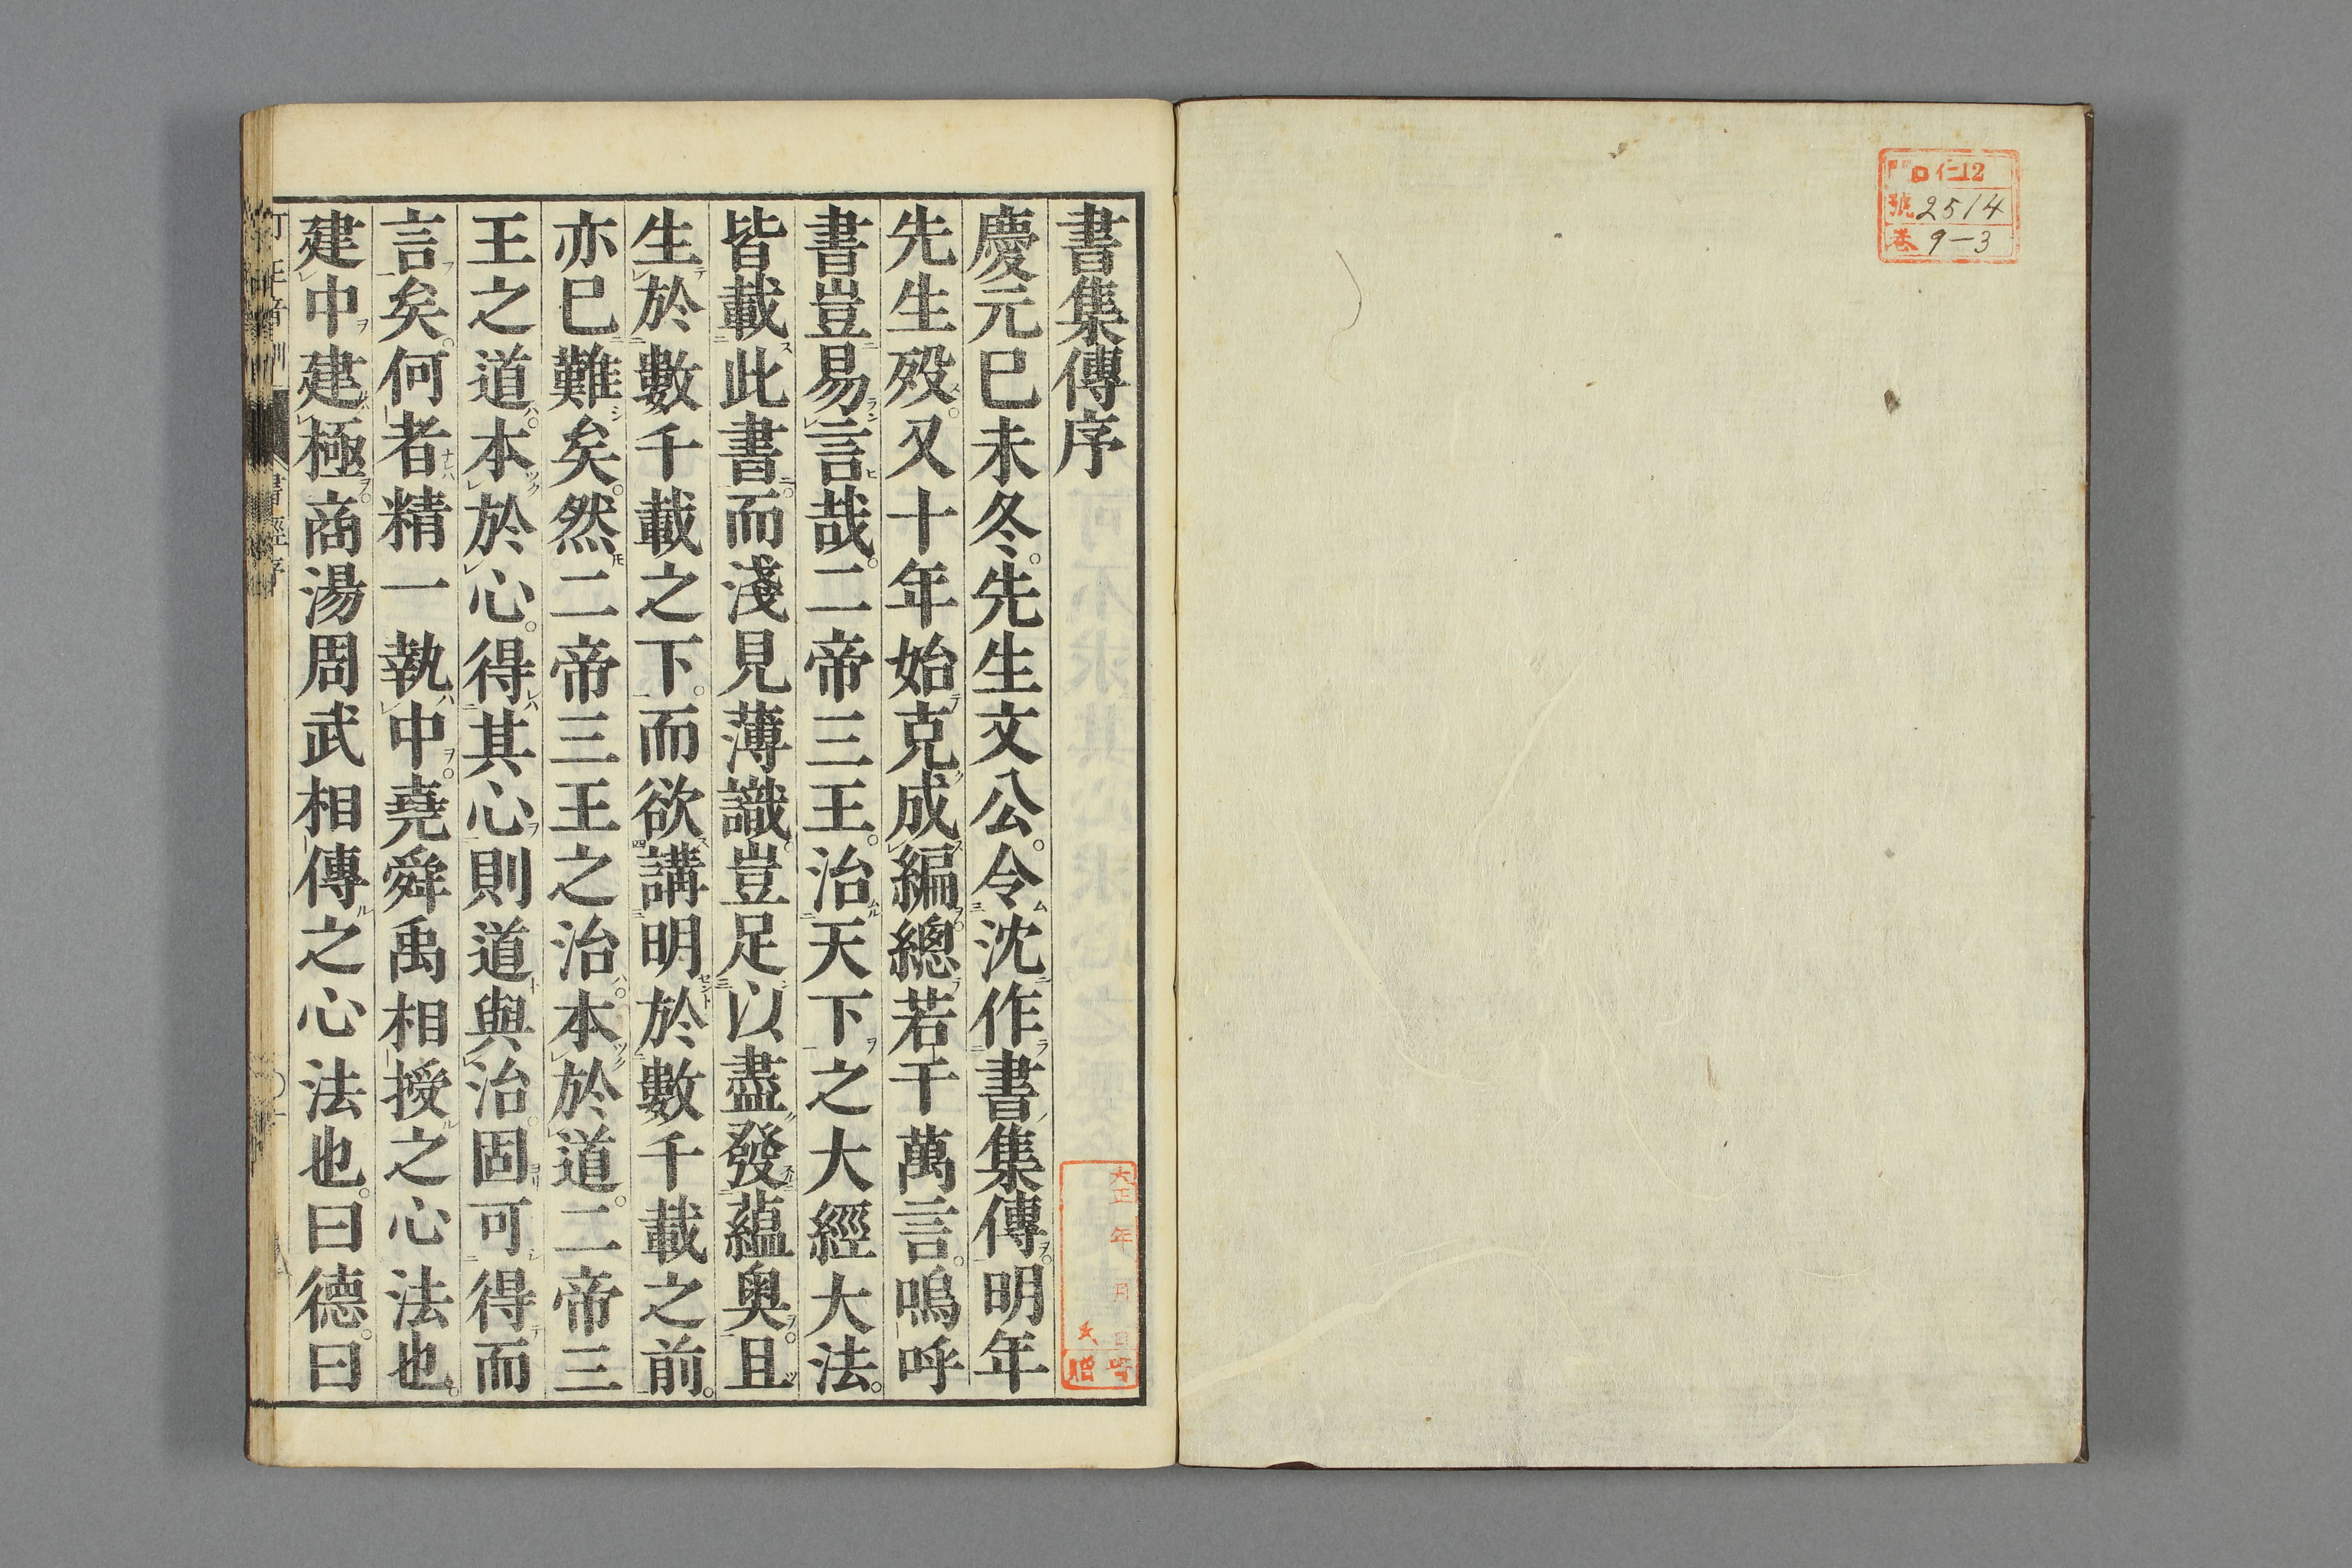 仁12
號2514
巻9-3
書集傳序
慶元巳未冬。先生文公。令沈作書集傳。明年
先生歿。又十年始克成編。總若干萬言。嗚呼
書豈易言哉。二帝三王。治天下之大經大法。
皆載此書。而淺見薄識。豈足以盡發蘊奧。且
生於數千載之下。而欲講明於數千載之前。
亦巳難矣。然二帝三王之治。本於道。二帝三
王之道。本於心。得其心則道與治。固可得而
言矣。何者精一執中。堯舜禹相授之心法也。
建中建極。商湯周武相傳之心法也。曰德。曰
書經序
大正 年 月 日
氏
寄贈